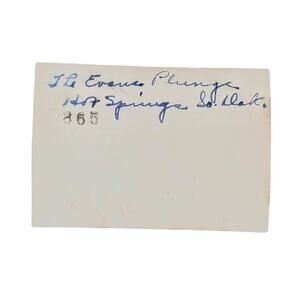 The Evans Plunge
Hot Springs So. Dak.
865